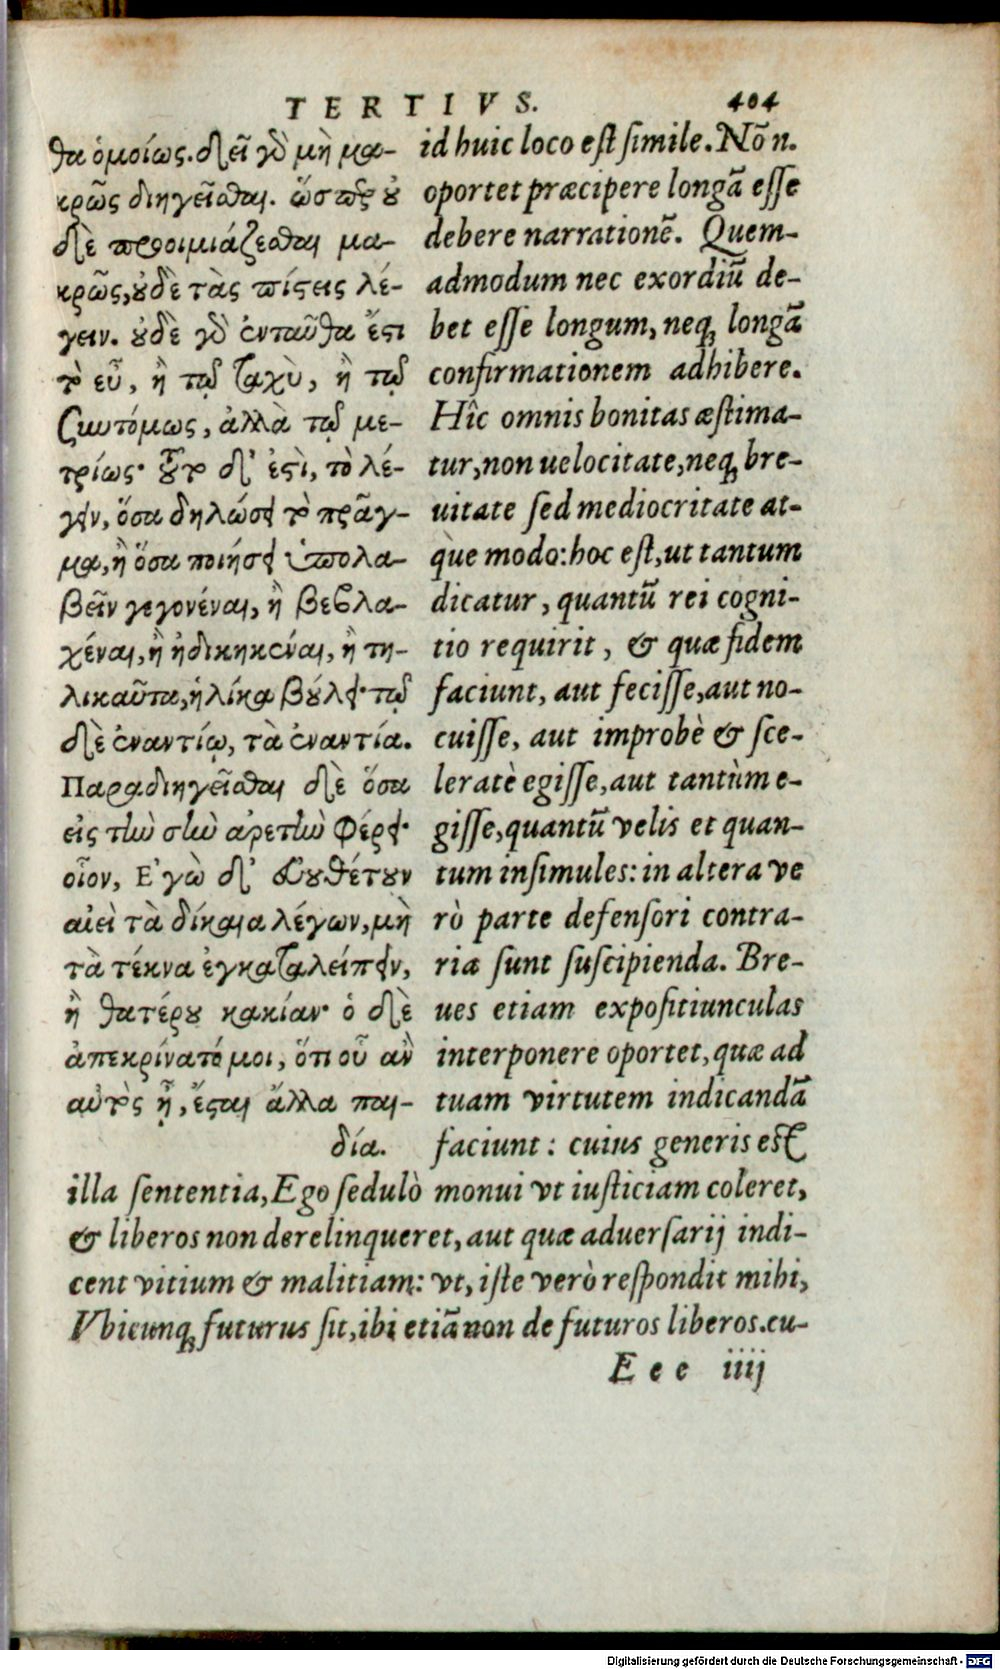 TERTIVS. 404
θα ὁμοίως. δεῖ γὸ μὴ μα-
κρῶς διηγεῖσθαι. ὥσπερ ȣ
δὲ προοιμιάζεσθαι μα-
κρῶς, ȣδὲ τὰς πίςεις λέ-
γειν. ȣδὲ γὸ ἐνταῦθα ἔςι
τὸ εὖ, ἢ τῷ ταχὺ, ἢ τῷ
συντόμως, ἀλλὰ τῷ με-
τρίως· τȣ͂το δ' ἐςὶ, τὸ λέ-
γειν, ὅσα δηλώσει τὸ πρᾶγ-
μα, ἢ ὅσα ποιήσει ὑπολα-
βεῖν γεγονέναι, ἢ βεβλα-
χέναι, ἢ ἠδικηκέναι, ἢ τη-
λικαῦτα, ἡλίκα βȣ́λει· τῷ
δὲ ἐναντίῳ, τὰ ἐναντία.
Παραδιηγεῖσθαι δὲ ὅσα
εἰς τὴν σὴν ἀρετὴν φέρει·
οἷον, Ε'γὼ δ' ἐνȣθέτȣν
αἰεὶ τὰ δίκαια λέγων, μὴ
τὰ τέκνα ἐγκαταλείπειν,
ἢ θατέρȣ κακίαν· ὁ δὲ
ἀπεκρίνατό μοι, ὅτι οὗ ἂν
αὐτὸς ᾖ, ἔςαι ἄλλα παι-
δία.
id huic loco est simile. Nõ n.
oportet præcipere longã esse
debere narrationẽ. Quem-
admodum nec exordiũ de-
bet esse longum, neq; longã
confirmationem adhibere.
Hîc omnis bonitas æstima-
tur, non uelocitate, neq; bre-
uitate sed mediocritate at-
què modo: hoc est, ut tantum
dicatur, quantũ rei cogni-
tio requirit, & quæ fidem
faciunt, aut fecisse, aut no-
cuisse, aut improbè & sce-
leratè egisse, aut tantùm e-
gisse, quantũ velis et quan-
tum insimules: in altera ve
rò parte defensori contra-
ria sunt suscipienda. Bre-
ues etiam expositiunculas
interponere oportet, quæ ad
tuam virtutem indicandã
faciunt: cuius generis est
illa sententia, Ego sedulò monui vt iusticiam coleret,
& liberos non derelinqueret, aut quæ aduersarij indi-
cent vitium & malitiam: vt, iste verò respondit mihi,
Vbicunq; futurus sit, ibi etiã non de futuros liberos. cu-
Eee iiij
Digitalisierung gefördert durch die Deutsche Forschungsgemeinschaft - DFG